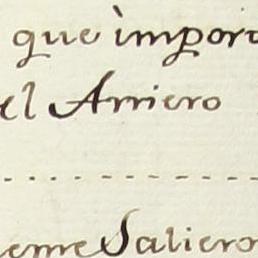 que import
el Arriero
eme Saliero